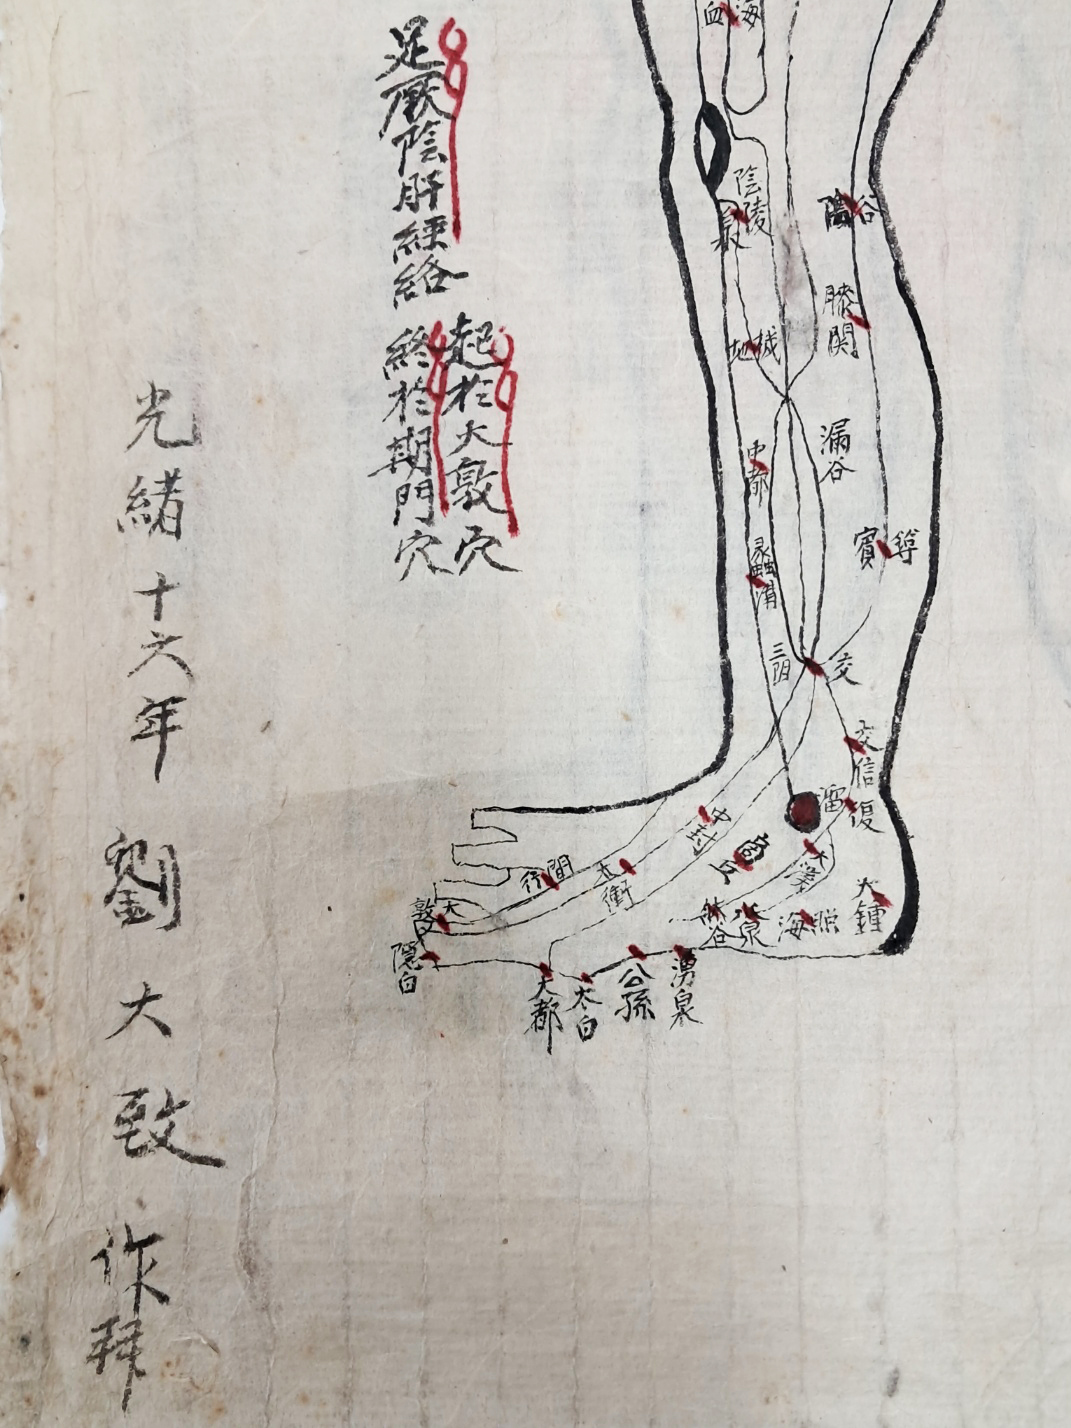 足厥陰肝經絡
起於大敦穴
終於期門穴
光緒十六年 劉大致作拜
血海
陰陵泉
陰谷
膝関
地机
漏谷
中都
賓
蠡溝
三阴交
交信
復溜
中封
商丘
大
大鍾
照海
水泉
然谷
太衝
行間
大敦
隱白
大都
太白
公孫
湧泉